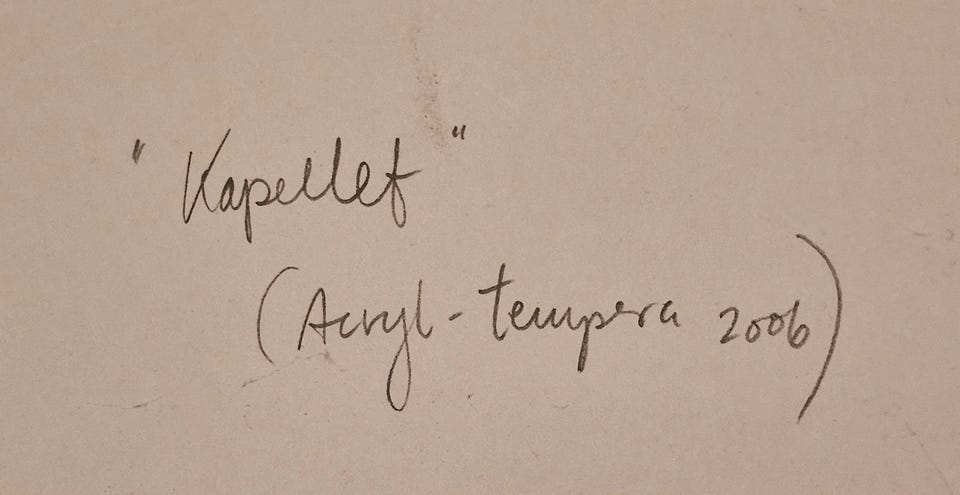 "Kapellet"
(Acryl-tempera 2006)